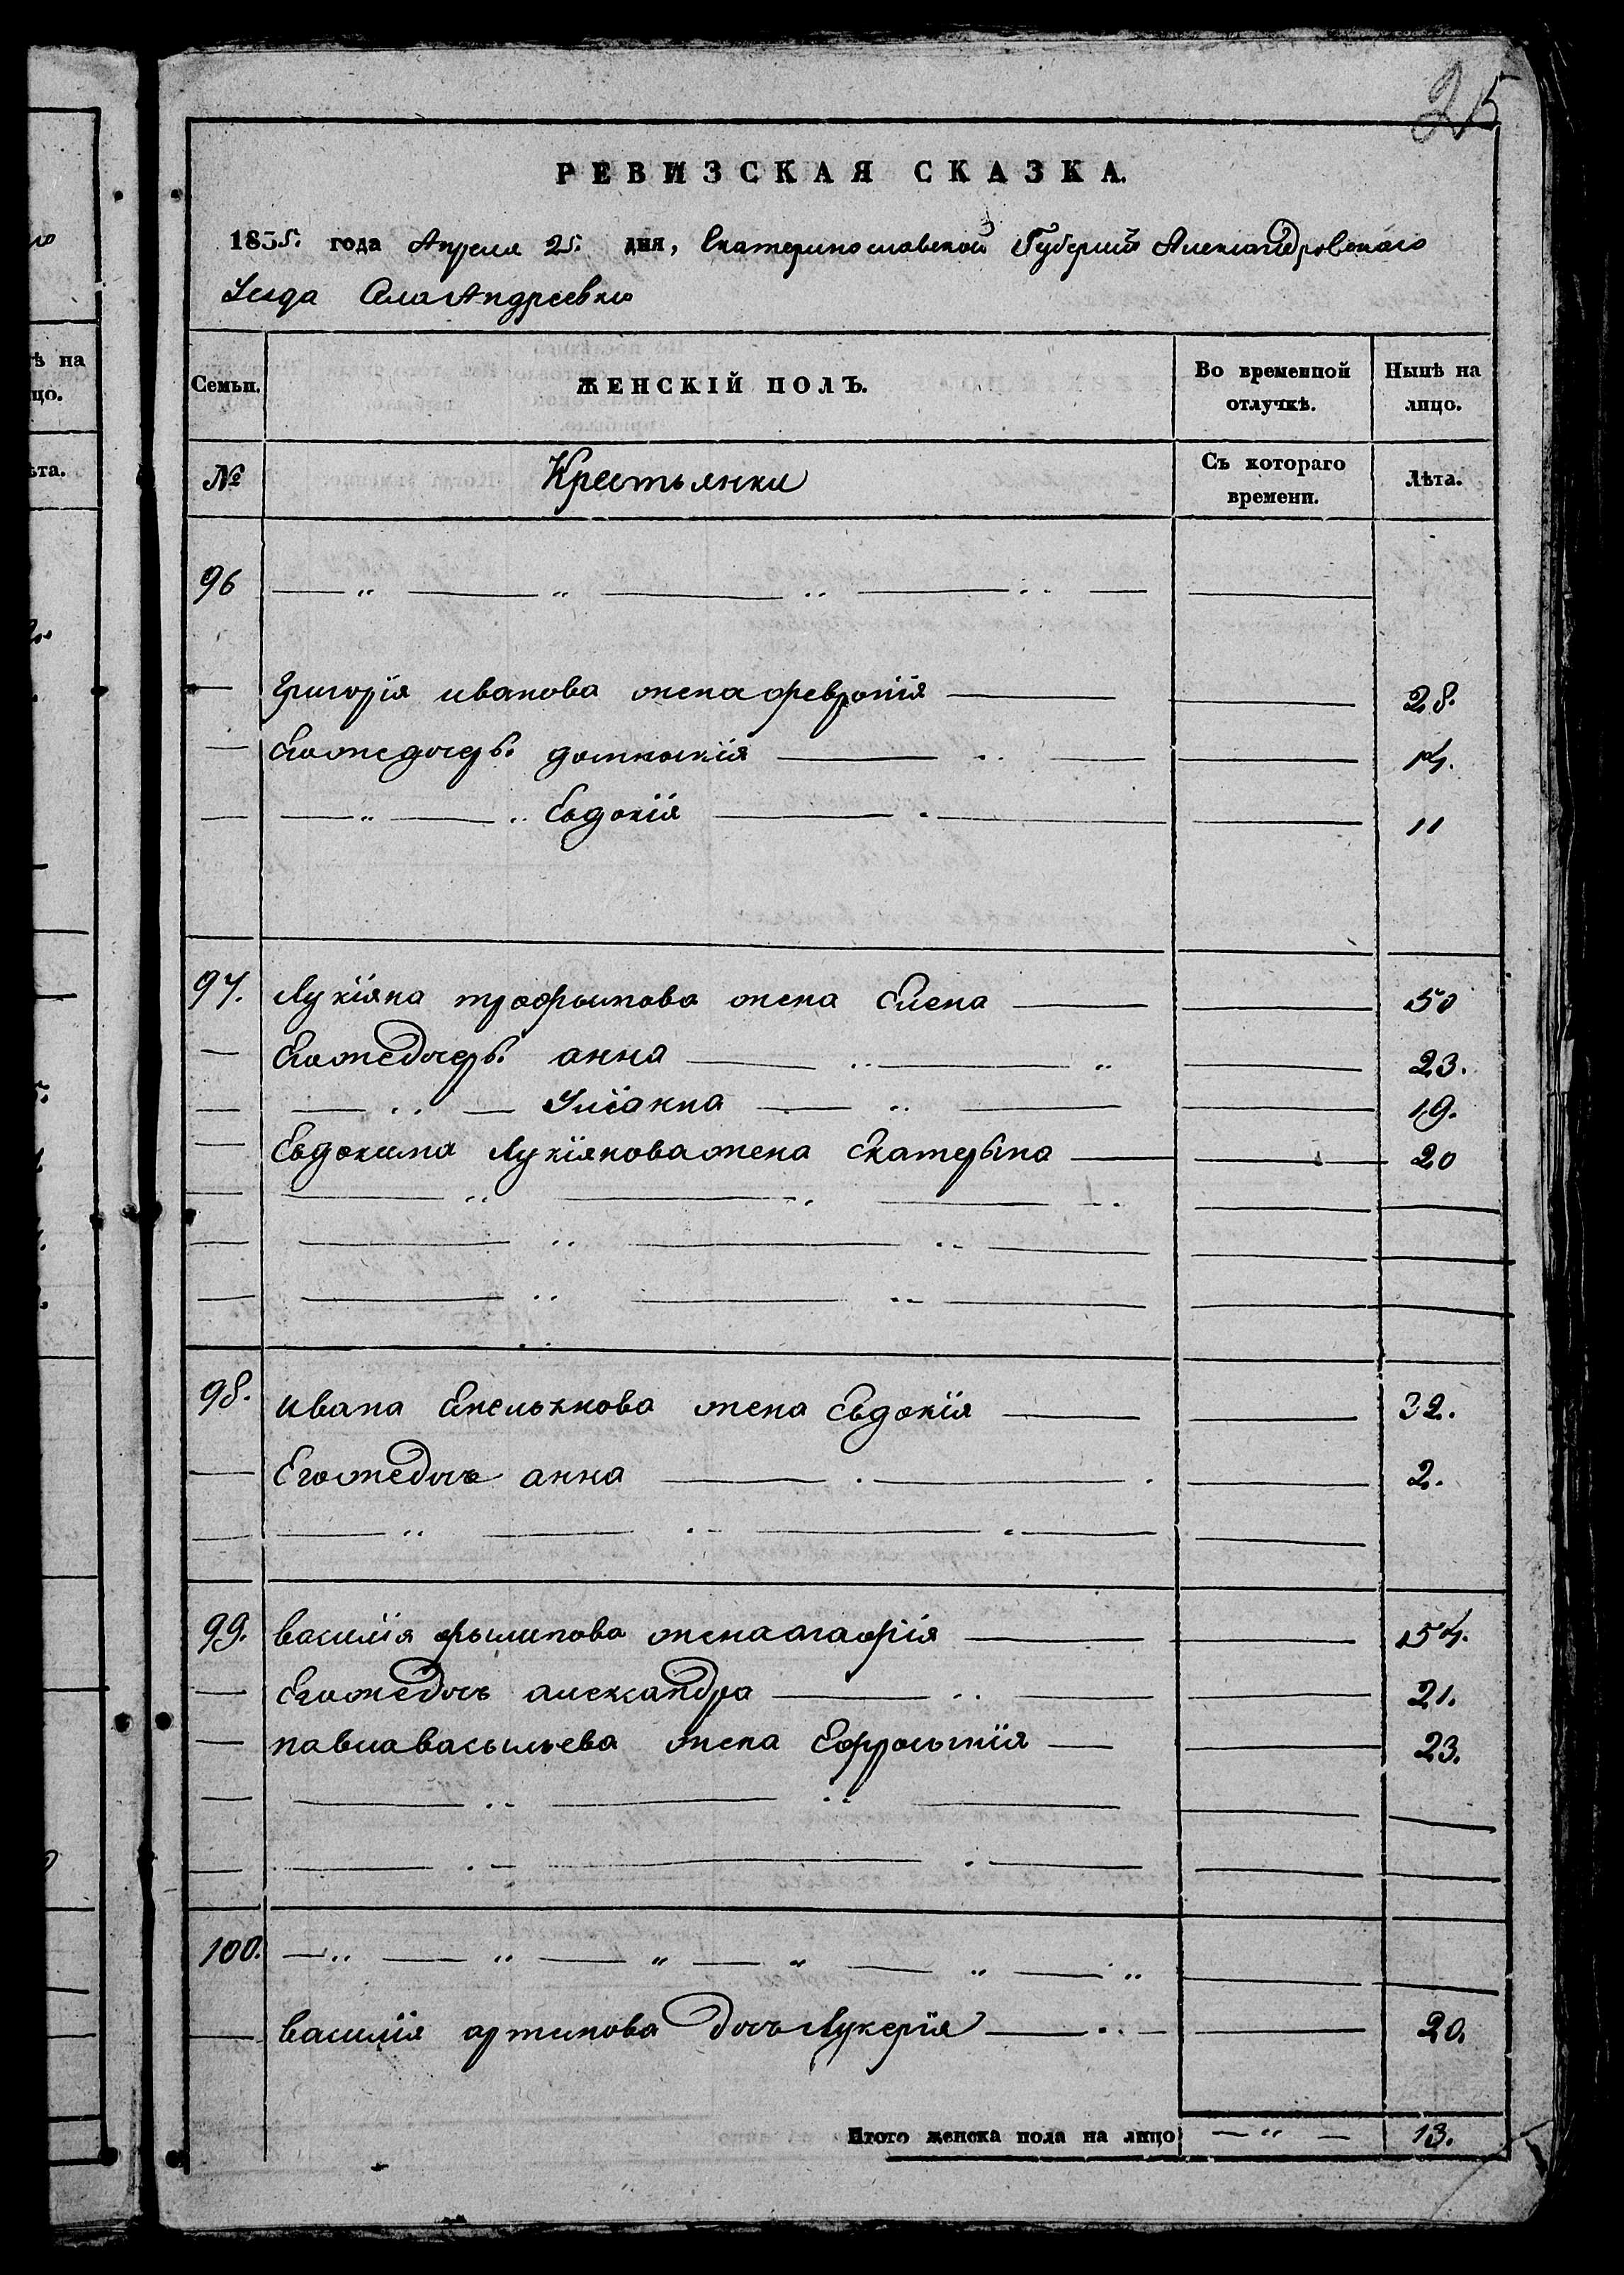 25
РЕВИЗСКАЯ СКАЗКА.
1835. года Апреля 25. дня, Екатеринославской Губернии Александровскаго
Уезда Села Андреевки
Семьи. ЖЕНСКІЙ ПОЛЪ. Во временной отлучкѣ. Нынѣ на лицо.
№ Крестьянки Съ котораго времени. Лѣта.
96
Григорія иванова жена февронія 28.
Егожедочерѣ домникія 14.
Евдокія 11
97. Лукіяна трофымова жена Елена 50
Егожедочерѣ анна 23.
Уліанна 19.
Евдокима Лукіянова жена Екатерына 20
98. ивана Емельянова жена Евдокія 32.
Егожедочь анна 2.
99. василія фылипова жена агафія 54.
Егожедочь александра 21.
павла васыльева жена Ефросынія 23.
100.
василія артимова дочь Лукерія 20.
Итого женска пола на лицо 13.
ѣ на
цо.
ѣта.